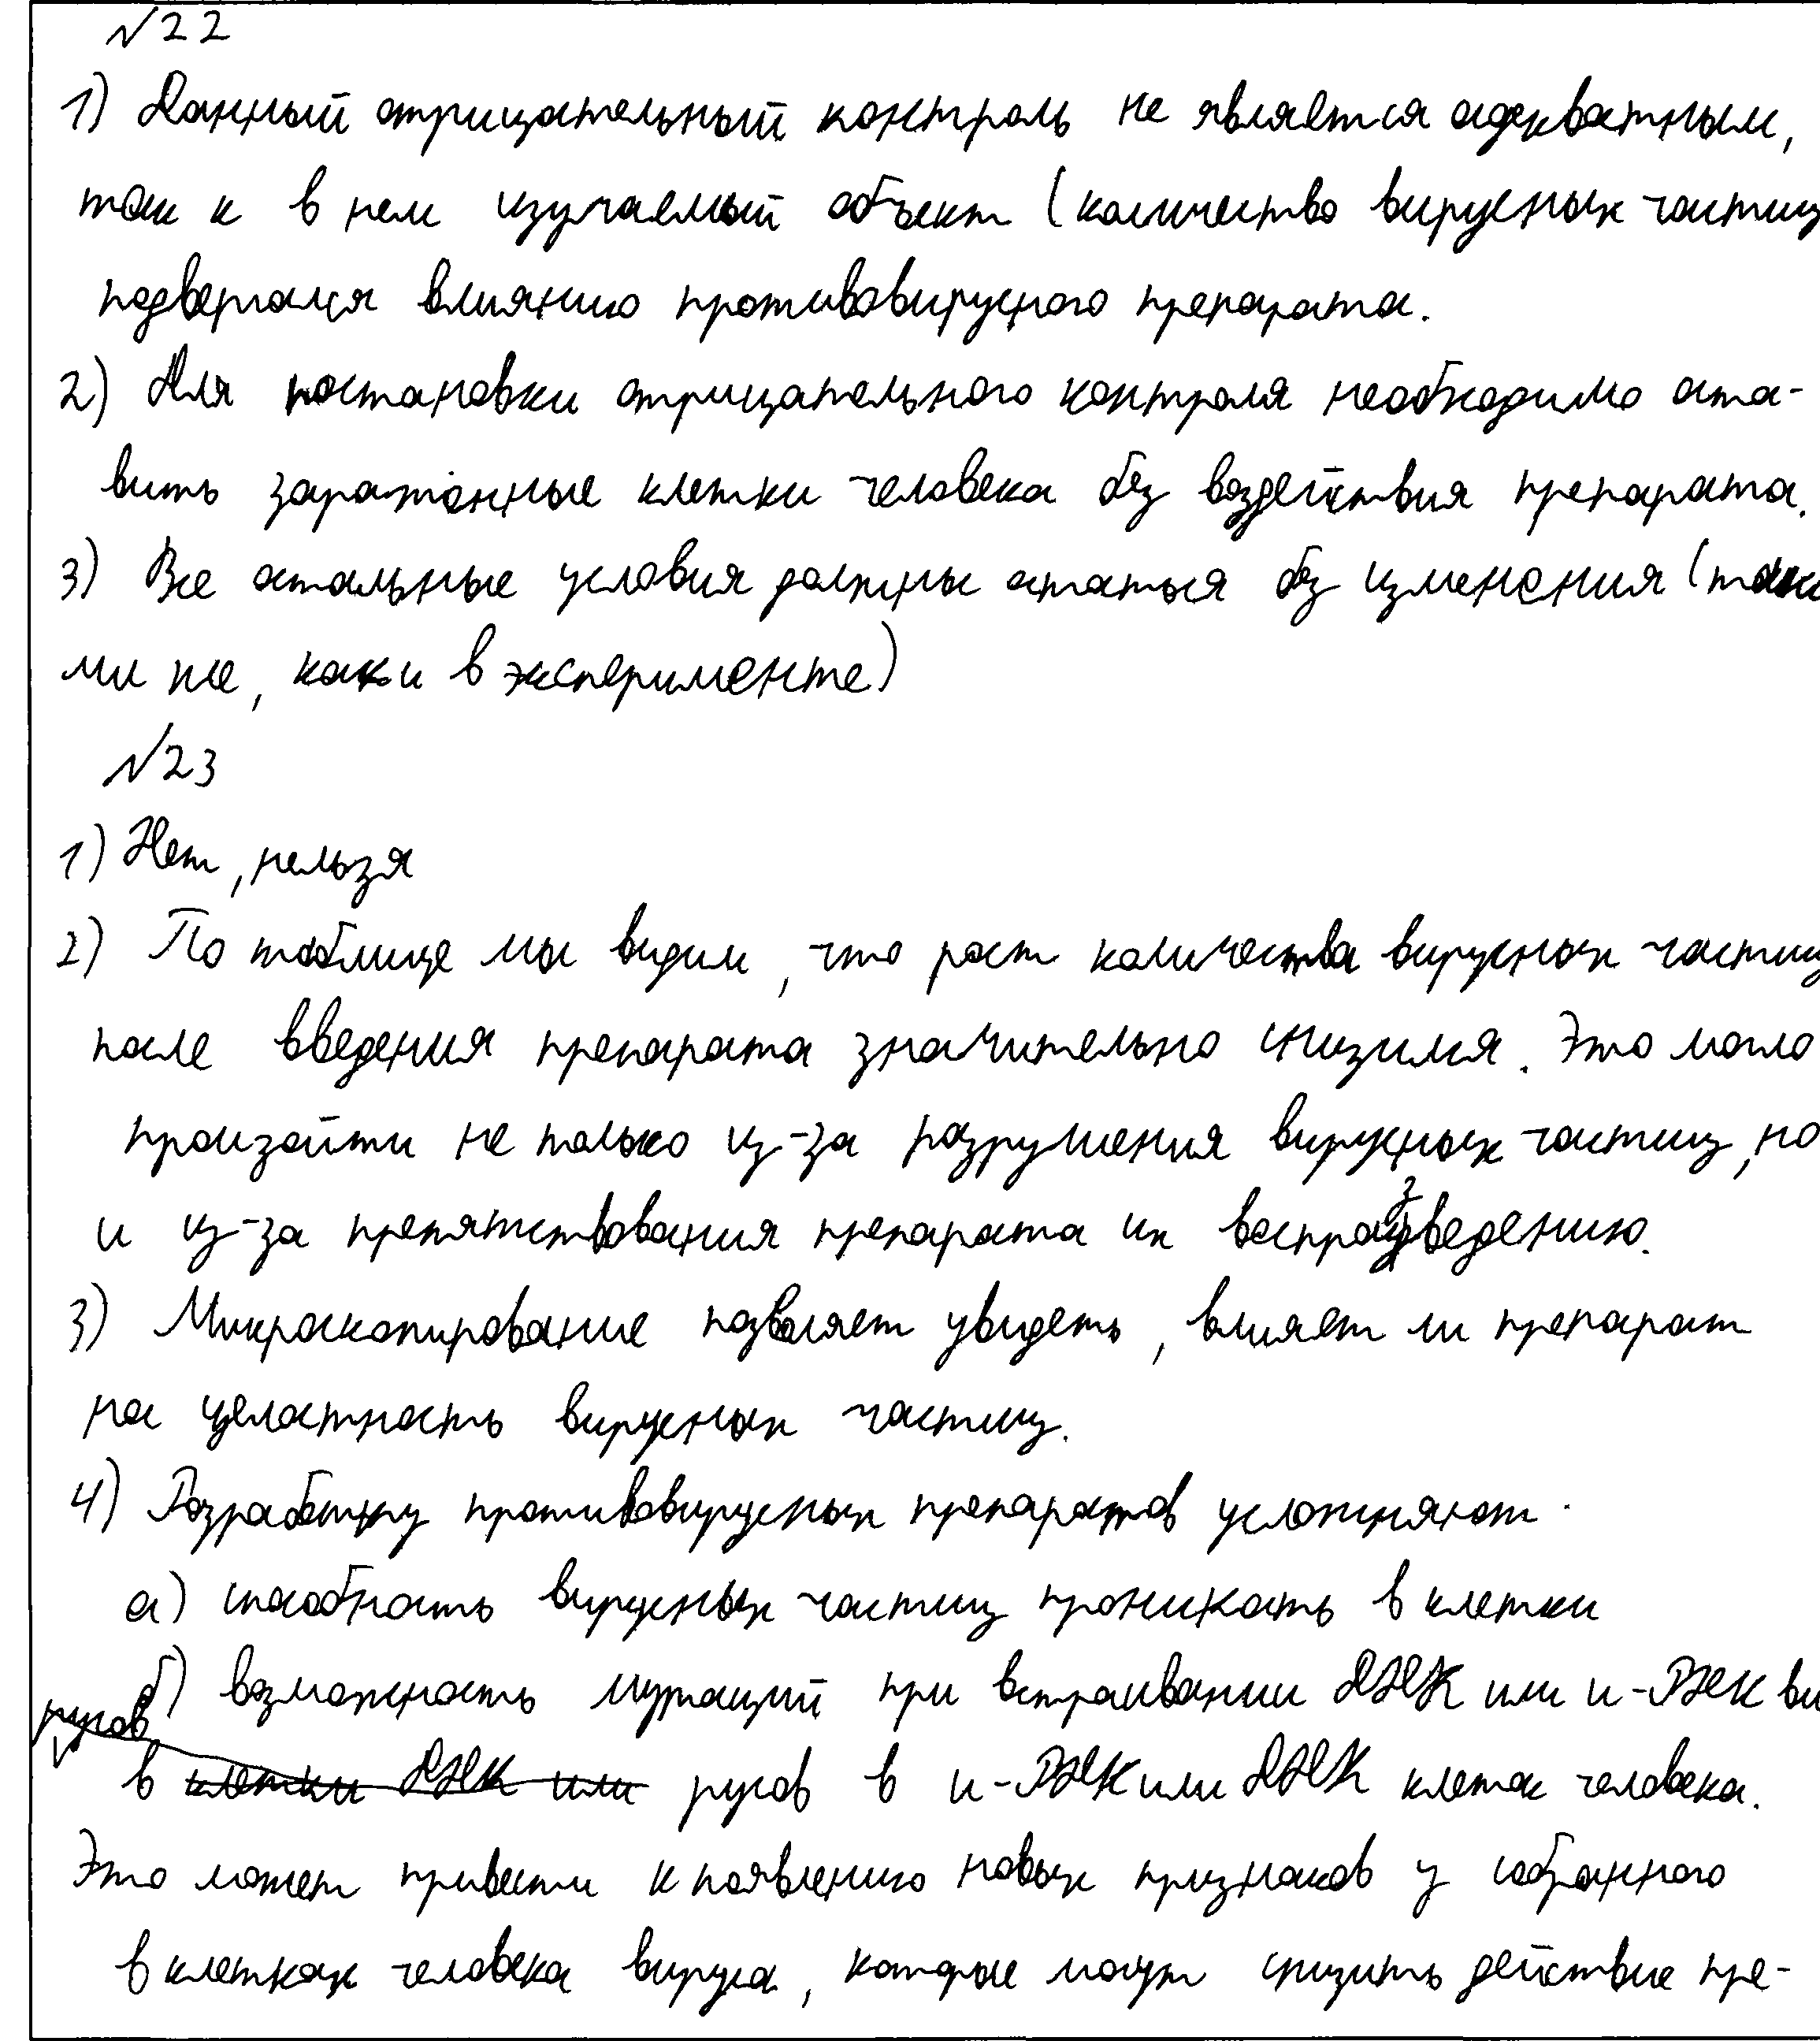 №22
1) Данный отрицательный контроль не является адекватным,
так к в нем изучаемый объект (количество вирусных частиц
подвергался влиянию противовирусного препарата.
2) Для постановки отрицательного контроля необходимо оста-
вить заражённые клетки человека без воздействия препарата.
3) Все остальные условия должны остаться без изменения (таки
ми же, как и в эксперименте)
№23
1) Нет, нельзя
2) По таблице мы видим, что рост количества вирусных частиц
после введения препарата значительно снизился. Это могло
произойти не только из-за разрушения вирусных частиц, но
и из-за препятствования препарата их воспроизведению.
3) Микроскопирование позволяет увидеть, влияет ли препарат
на целостность вирусных частиц.
4) Разработку противовирусных препаратов усложняют
а) способность вирусных частиц проникать в клетки
б) возможность мутаций при встраивании ДНК или и-РНК ви
русов
в клетки ДНК или русов в и-РНК или ДНК клеток человека.
Это может привести к появлению новых признаков у собранного
в клетках человека вируса, которые могут снизить действие пре-